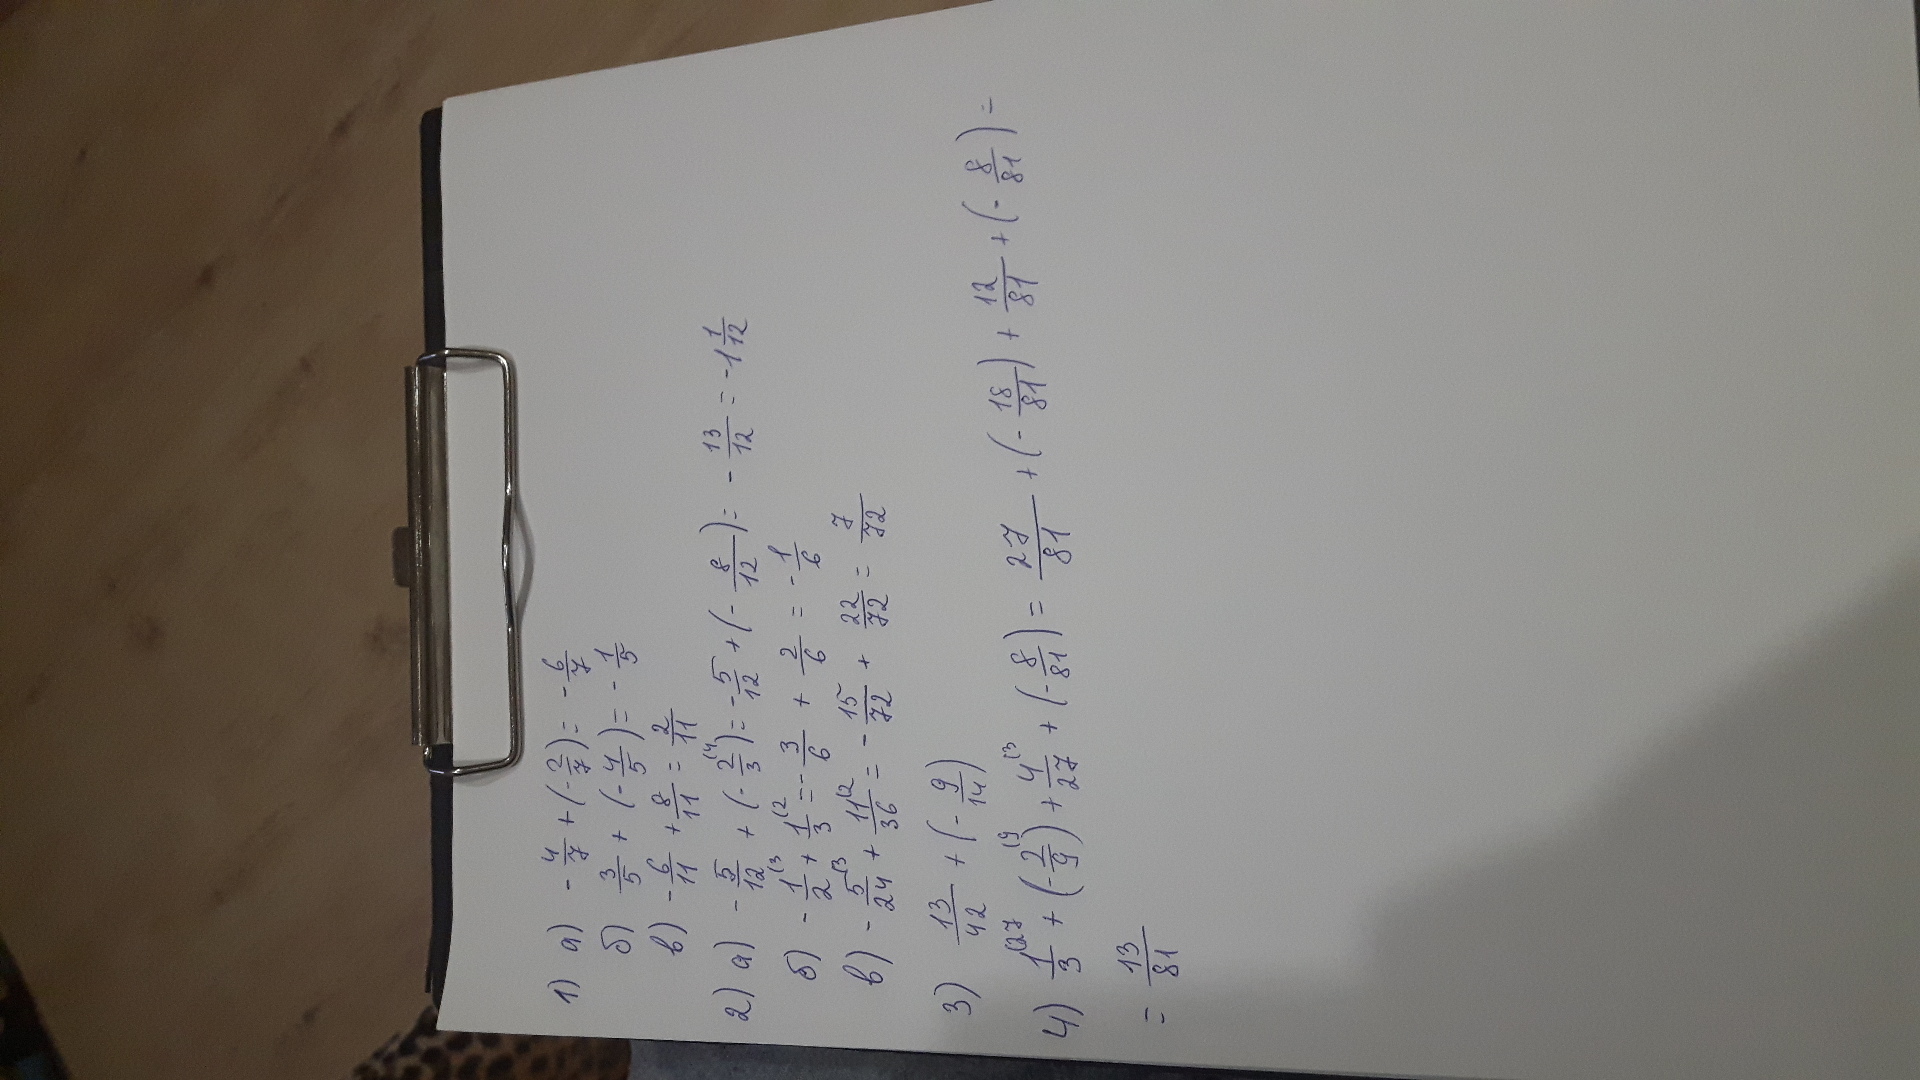 1) а) - 4/7 + (- 2/7) = - 6/7
б) 3/5 + (- 4/5) = - 1/5
в) - 6/11 + 8/11 = 2/11
2) а) - 5/12 + (- 2/3 (4) = - 5/12 + (- 8/12) = - 13/12 = - 1 1/12
б) - 1/2 (3 + 1/3 (2 = - 3/6 + 2/6 = - 1/6
в) - 5/24 (3 + 11/36 (2 = - 15/72 + 22/72 = 7/72
3) 13/42 + (- 9/14)
4) 1/3 (27 + (- 2/9 (9) + 4/27 (3 + (- 8/81) = 27/81 + (- 18/81) + 12/81 + (- 8/81) =
= 13/81